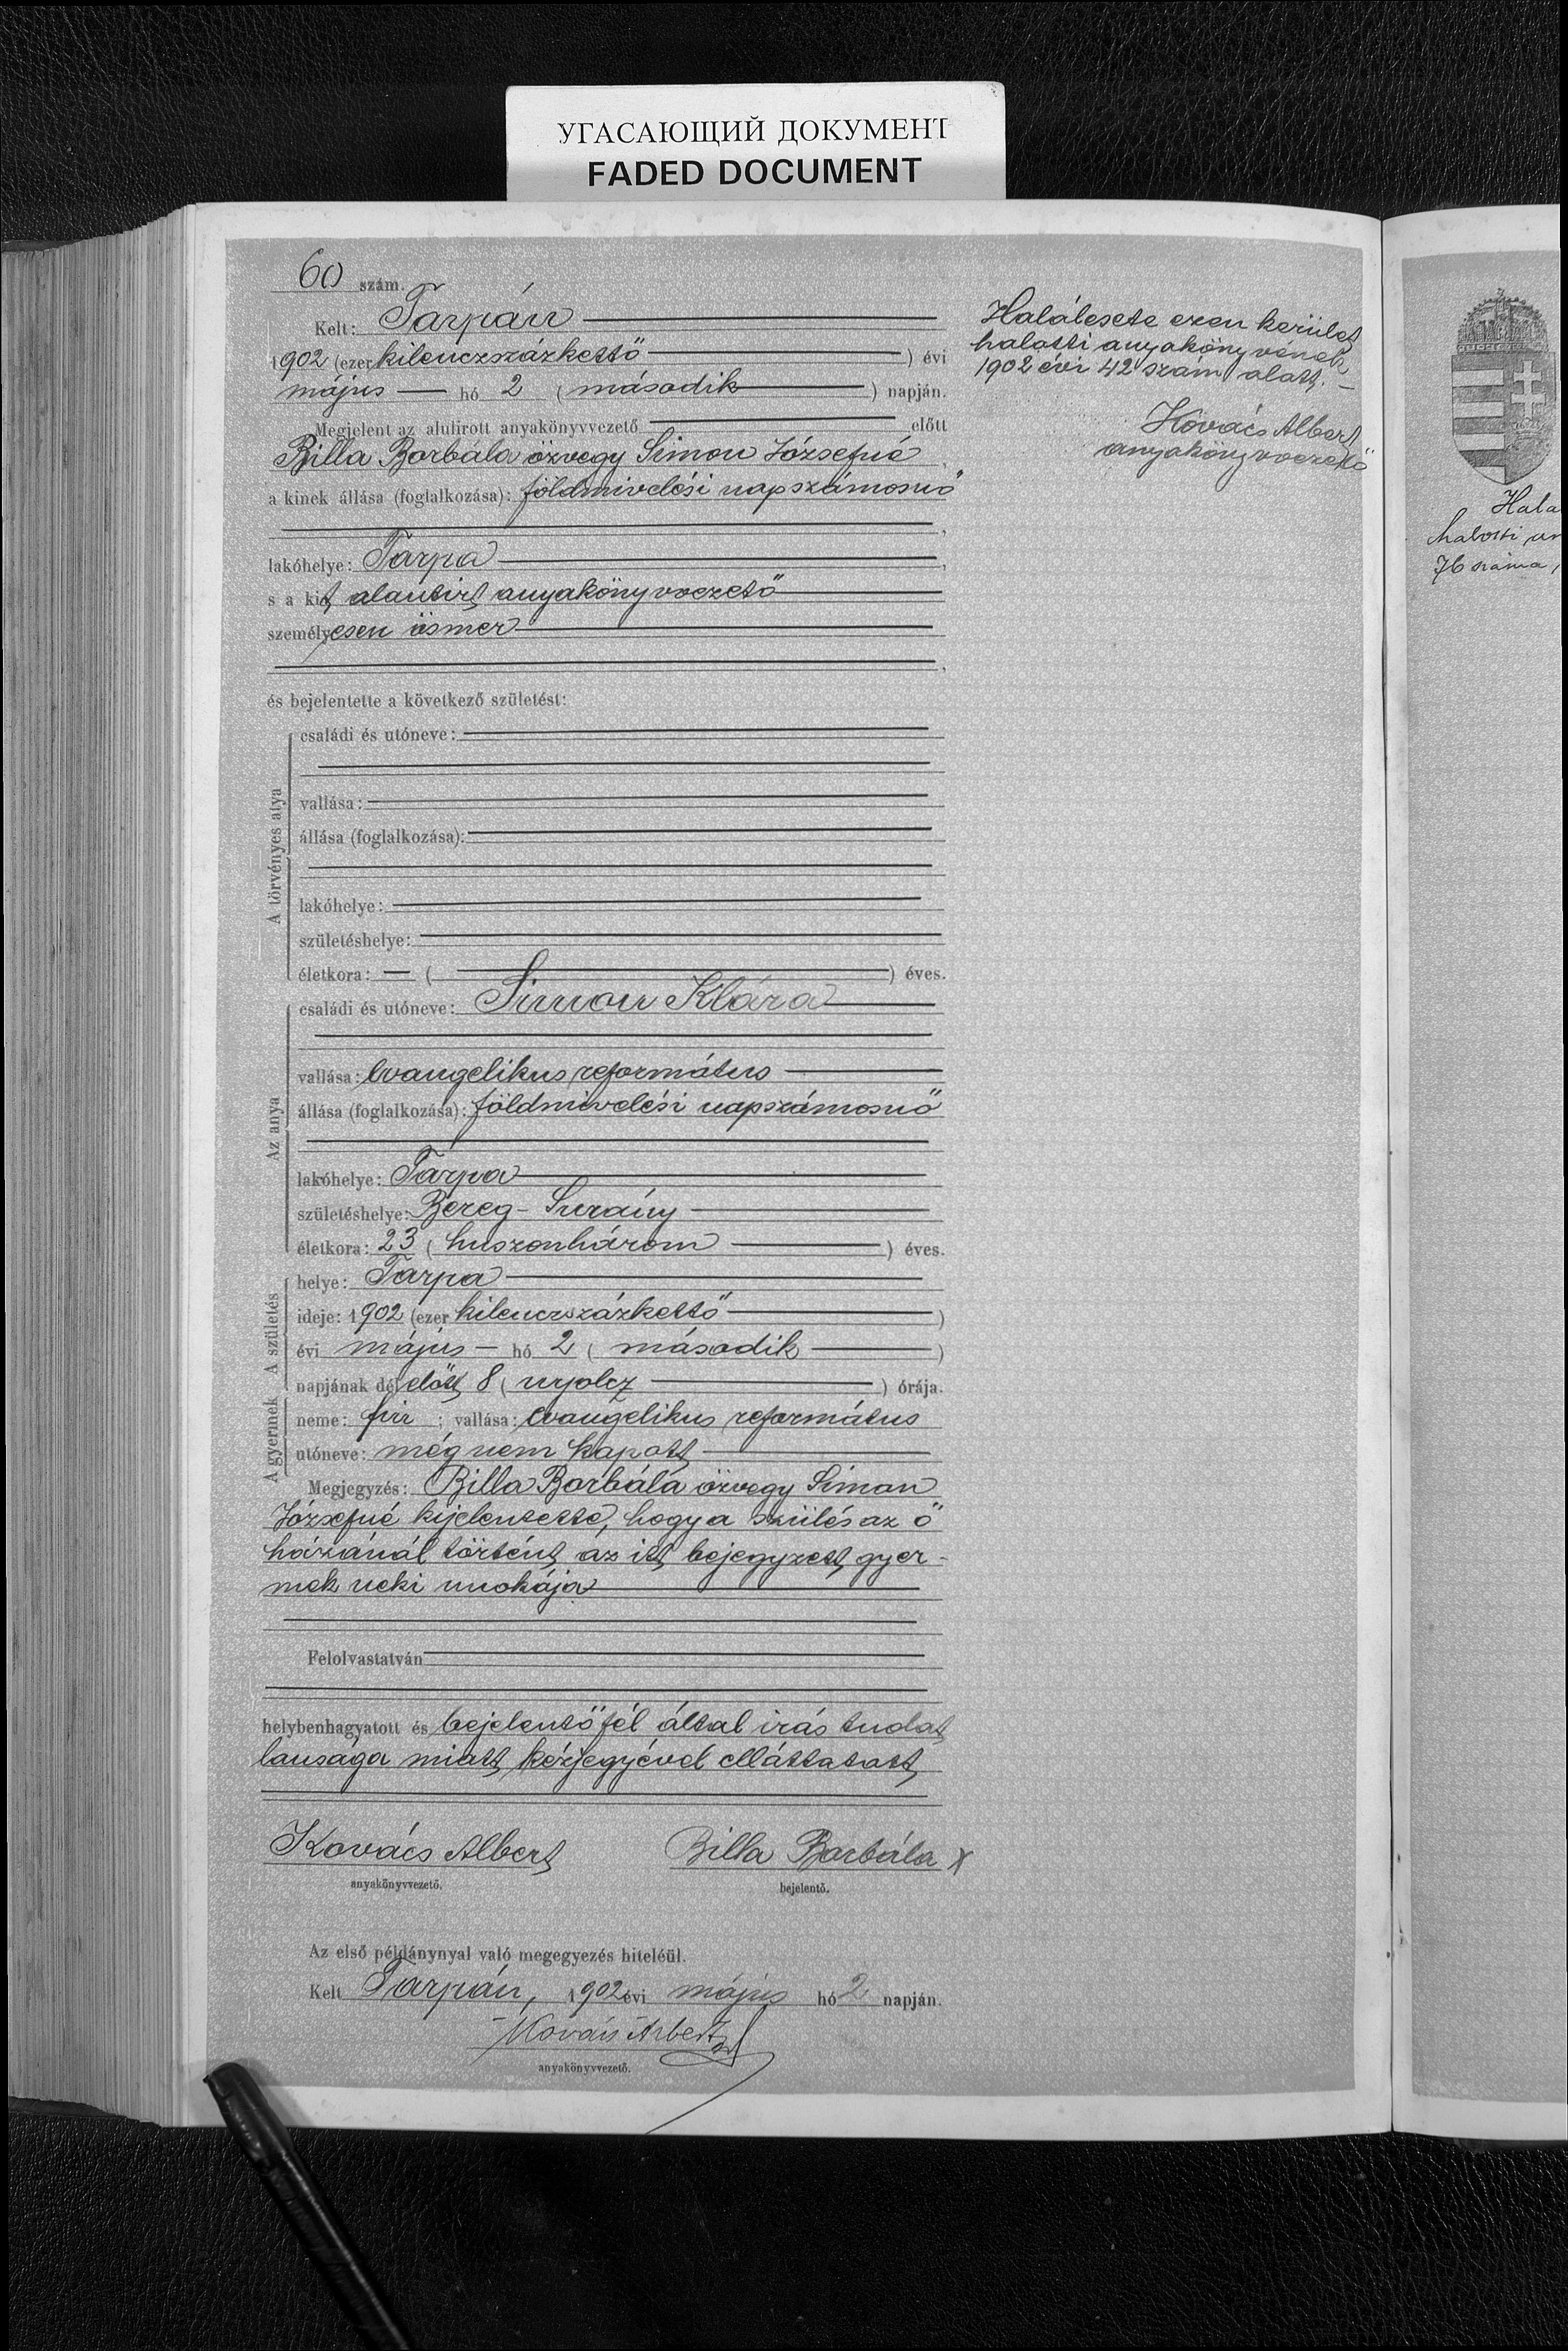 УГАСАЮЩИЙ ДОКУМЕНТ
FADED DOCUMENT
60 szám.
Kelt: Tarpán
1902 (ezer kilenczszázkettő) évi
május hó 2 (második) napján.
Megjelent az alulirott anyakönyvvezető előtt
Billa Borbála özvegy Simon Józsefné,
a kinek állása (foglalkozása): földmivelési napszámosnő
lakóhelye: Tarpa,
s a kit alantirt anyakönyvvezető
személyesen ösmer
és bejelentette a következő születést:
A törvényes atya
családi és utóneve:
vallása:
állása (foglalkozása):
lakóhelye:
születéshelye:
életkora: — ( ) éves.
Az anya
családi és utóneve: Simon Klára
vallása: evangelikus református
állása (foglalkozása): földmivelési napszámosnő
lakóhelye: Tarpa
születéshelye: Bereg-Surány
életkora: 23 (huszonhárom) éves.
A születés
helye: Tarpa
ideje: 1902 (ezer kilenczszázkettő)
évi május hó 2 (második)
napjának délelőtt 8 (nyolcz) órája.
A gyermek
neme: fiú; vallása: evangelikus református
utóneve: még nem kapott
Megjegyzés: Billa Borbála özvegy Simon
Józsefné kijelentette, hogy a szülés az ő
házánál történt, az itt bejegyzett gyer-
mek neki unokája
Felolvastatván
helybenhagyatott és bejelentő fél által irás tudat
lansága miatt kézjegyével elláttatott
Kovács Albert
anyakönyvvezető.
Billa Borbála X
bejelentő.
Az első példánynyal való megegyezés hiteléül.
Kelt Tarpán, 1902 évi május hó 2 napján.
Kovács Albert
anyakönyvvezető.
Halálesete ezen kerület
halotti anyakönyvének
1902 évi 42 szám alatt. —
Kovács Albert
anyakönyvvezető
Hala
halotti an
76 száma